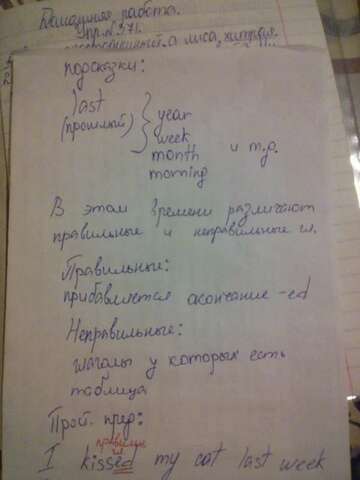 Домашняя работа.
пр. N371.
а лиса, хитрая.
подсказки:
last
(прошлый)
year
week
month и т.р.
morning
В этом времени различают
правильные и неправильные гл.
Правильные:
прибавляется окончание -ed
Неправильные:
глаголы у которых есть
таблица
Прой. пред:
правильн
I kissed my cat last week